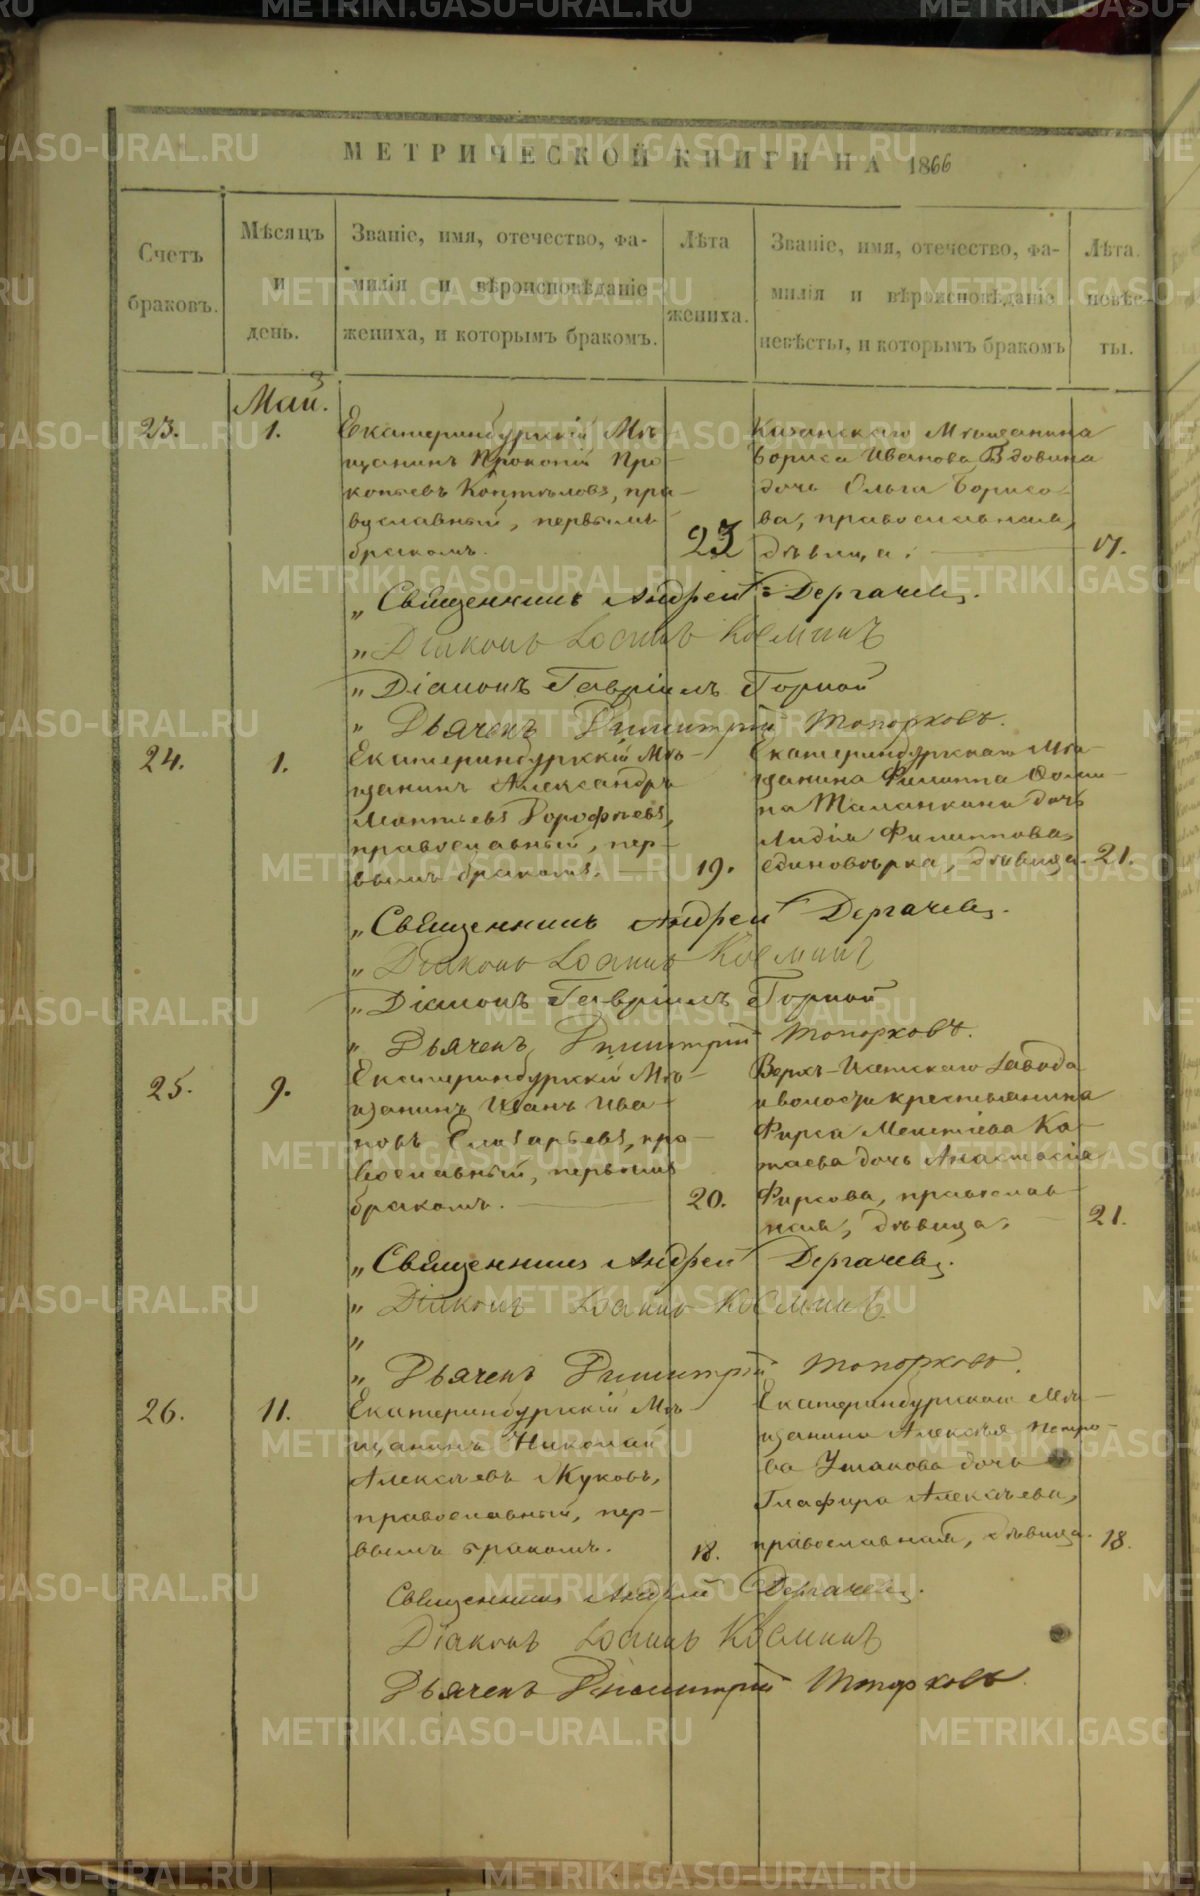 МЕТРИЧЕСКОЙ КНИГИ НА 1866
Счетъ браковъ.
Мѣсяцъ и день.
Званіе, имя, отечество, фа-
милія и вѣроисповѣданіе
жениха, и которымъ бракомъ.
Лѣта жениха.
Званіе, имя, отечество, фа-
милія и вѣроисповѣданіе
невѣсты, и которымъ бракомъ
Лѣта невѣс-
ты.
Май.
23.
1.
Екатеринбургскій Мѣ
щанинъ Прокопій Про-
копьевъ Коптѣловъ, пра-
вуславный, первымъ
бракомъ.
23
Казанскаго Мѣщанина
Бориса Иванова Вдовина
дочь Ольга Борисо-
ва, православная,
дѣвица.
17.
„ Священникъ Андрей Дергачевъ.
„ Діаконъ Іоаннъ Косминъ
„ Діаконъ Гавріилъ Горной
„ Дьячекъ Димитрій Топорковъ.
24.
1.
Екатеринбургскій Мѣ-
щанинъ Александръ
Дорофѣевъ,
православный, пер-
вымъ бракомъ.
19.
Екатеринбургскаго Мѣ-
щанина Филиппа Ѳоми-
на Таланкина дочь
Лидія Филиппова,
единовѣрка, дѣвица.
21.
„ Священникъ Андрей Дергачевъ.
„ Діаконъ Іоаннъ Косминъ
„ Діаконъ Гавріилъ Горной
„ Дьячекъ Димитрій Топорковъ.
25.
9.
Екатеринбургскій Мѣ-
щанинъ Иванъ Ива-
новъ Елизарьевъ, пра-
вославный, первымъ
бракомъ.
20.
Верхъ-Исетскаго Завода
и волости крестьянина
Фирса Ка-
таева дочь Анастасія
Фирсова, православ-
ная, дѣвица.
21.
„ Священникъ Андрей Дергачевъ.
„ Діаконъ Іоаннъ Косминъ
„
„ Дьячекъ Димитрій Топорковъ.
26.
11.
Екатеринбургскій Мѣ-
щанинъ Николай
Алексѣевъ Жуковъ,
православный, пер-
вымъ бракомъ.
18.
Екатеринбургскаго Мѣ-
щанина Алексѣя Петро-
ва Ушакова дочь
Глафира Алексѣева,
православная, дѣвица.
18.
Священникъ Андрей Дергачевъ.
Діаконъ Іоаннъ Косминъ
Дьячекъ Димитрій Топорковъ
METRIKI.GASO-URAL.RU